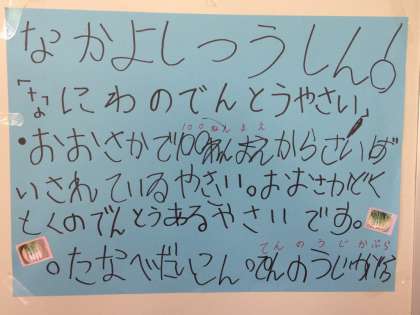 なかよしつうしん!
「なにわのでんとうやさい」
100ねんまえ
・おおさかで100ねんまえからさいば
いされているやさい。おおさかどく
とくのでんとうあるやさいです。
てんのうじかぶら
。たなべだいこん。てんのうじかぶら